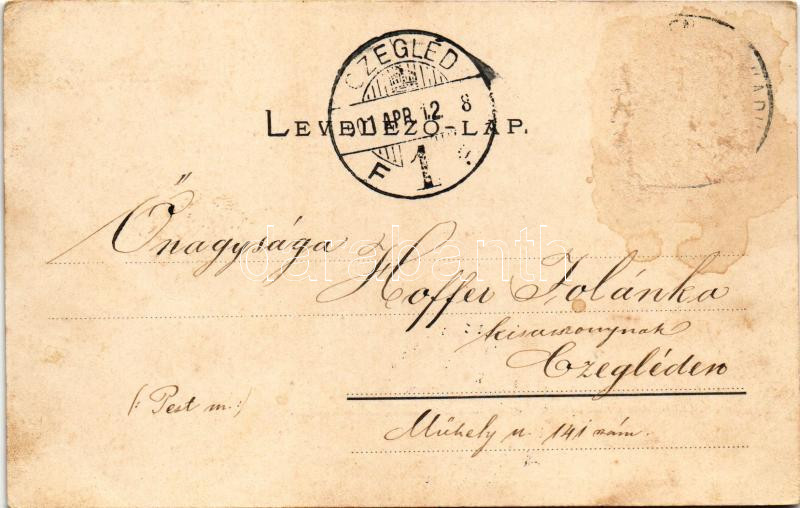 CZEGLÉD
901 APR. 12. 8
F 1
LEVELEZŐ-LAP.
Őnagysága
Hoffer Jolánka
kisasszonynak
Czegléden
(: Pest m :)
Műhely u. 141 szám.
darabanth